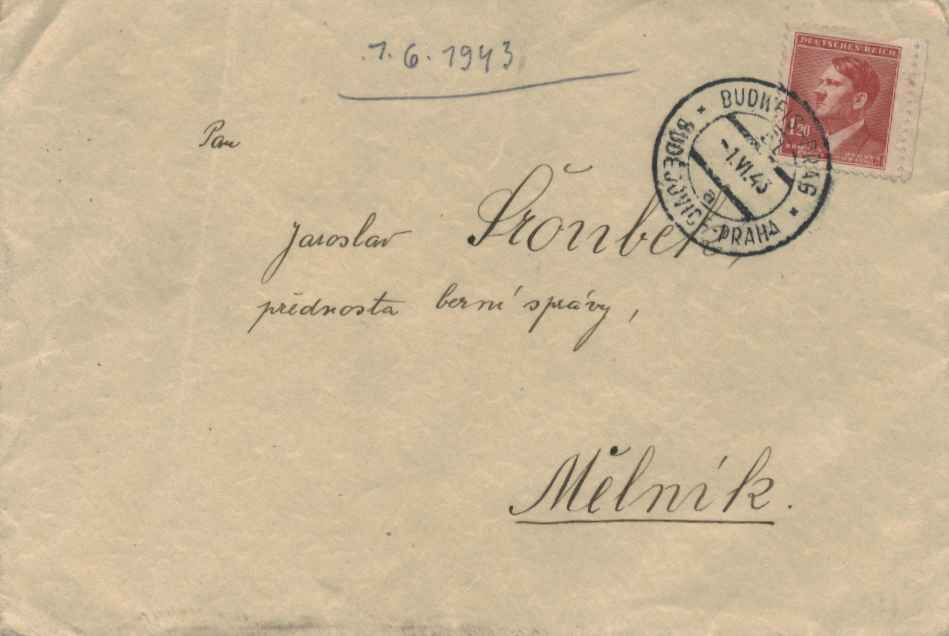 1.6.1943
DEUTSCHES REICH
1.20
BUDWEIS PRAG
-1.VI.43
a
BUDĚJOVICE-PRAHA
Pan
Jaroslav Šroubek,
přednosta berní správy,
Mělník.